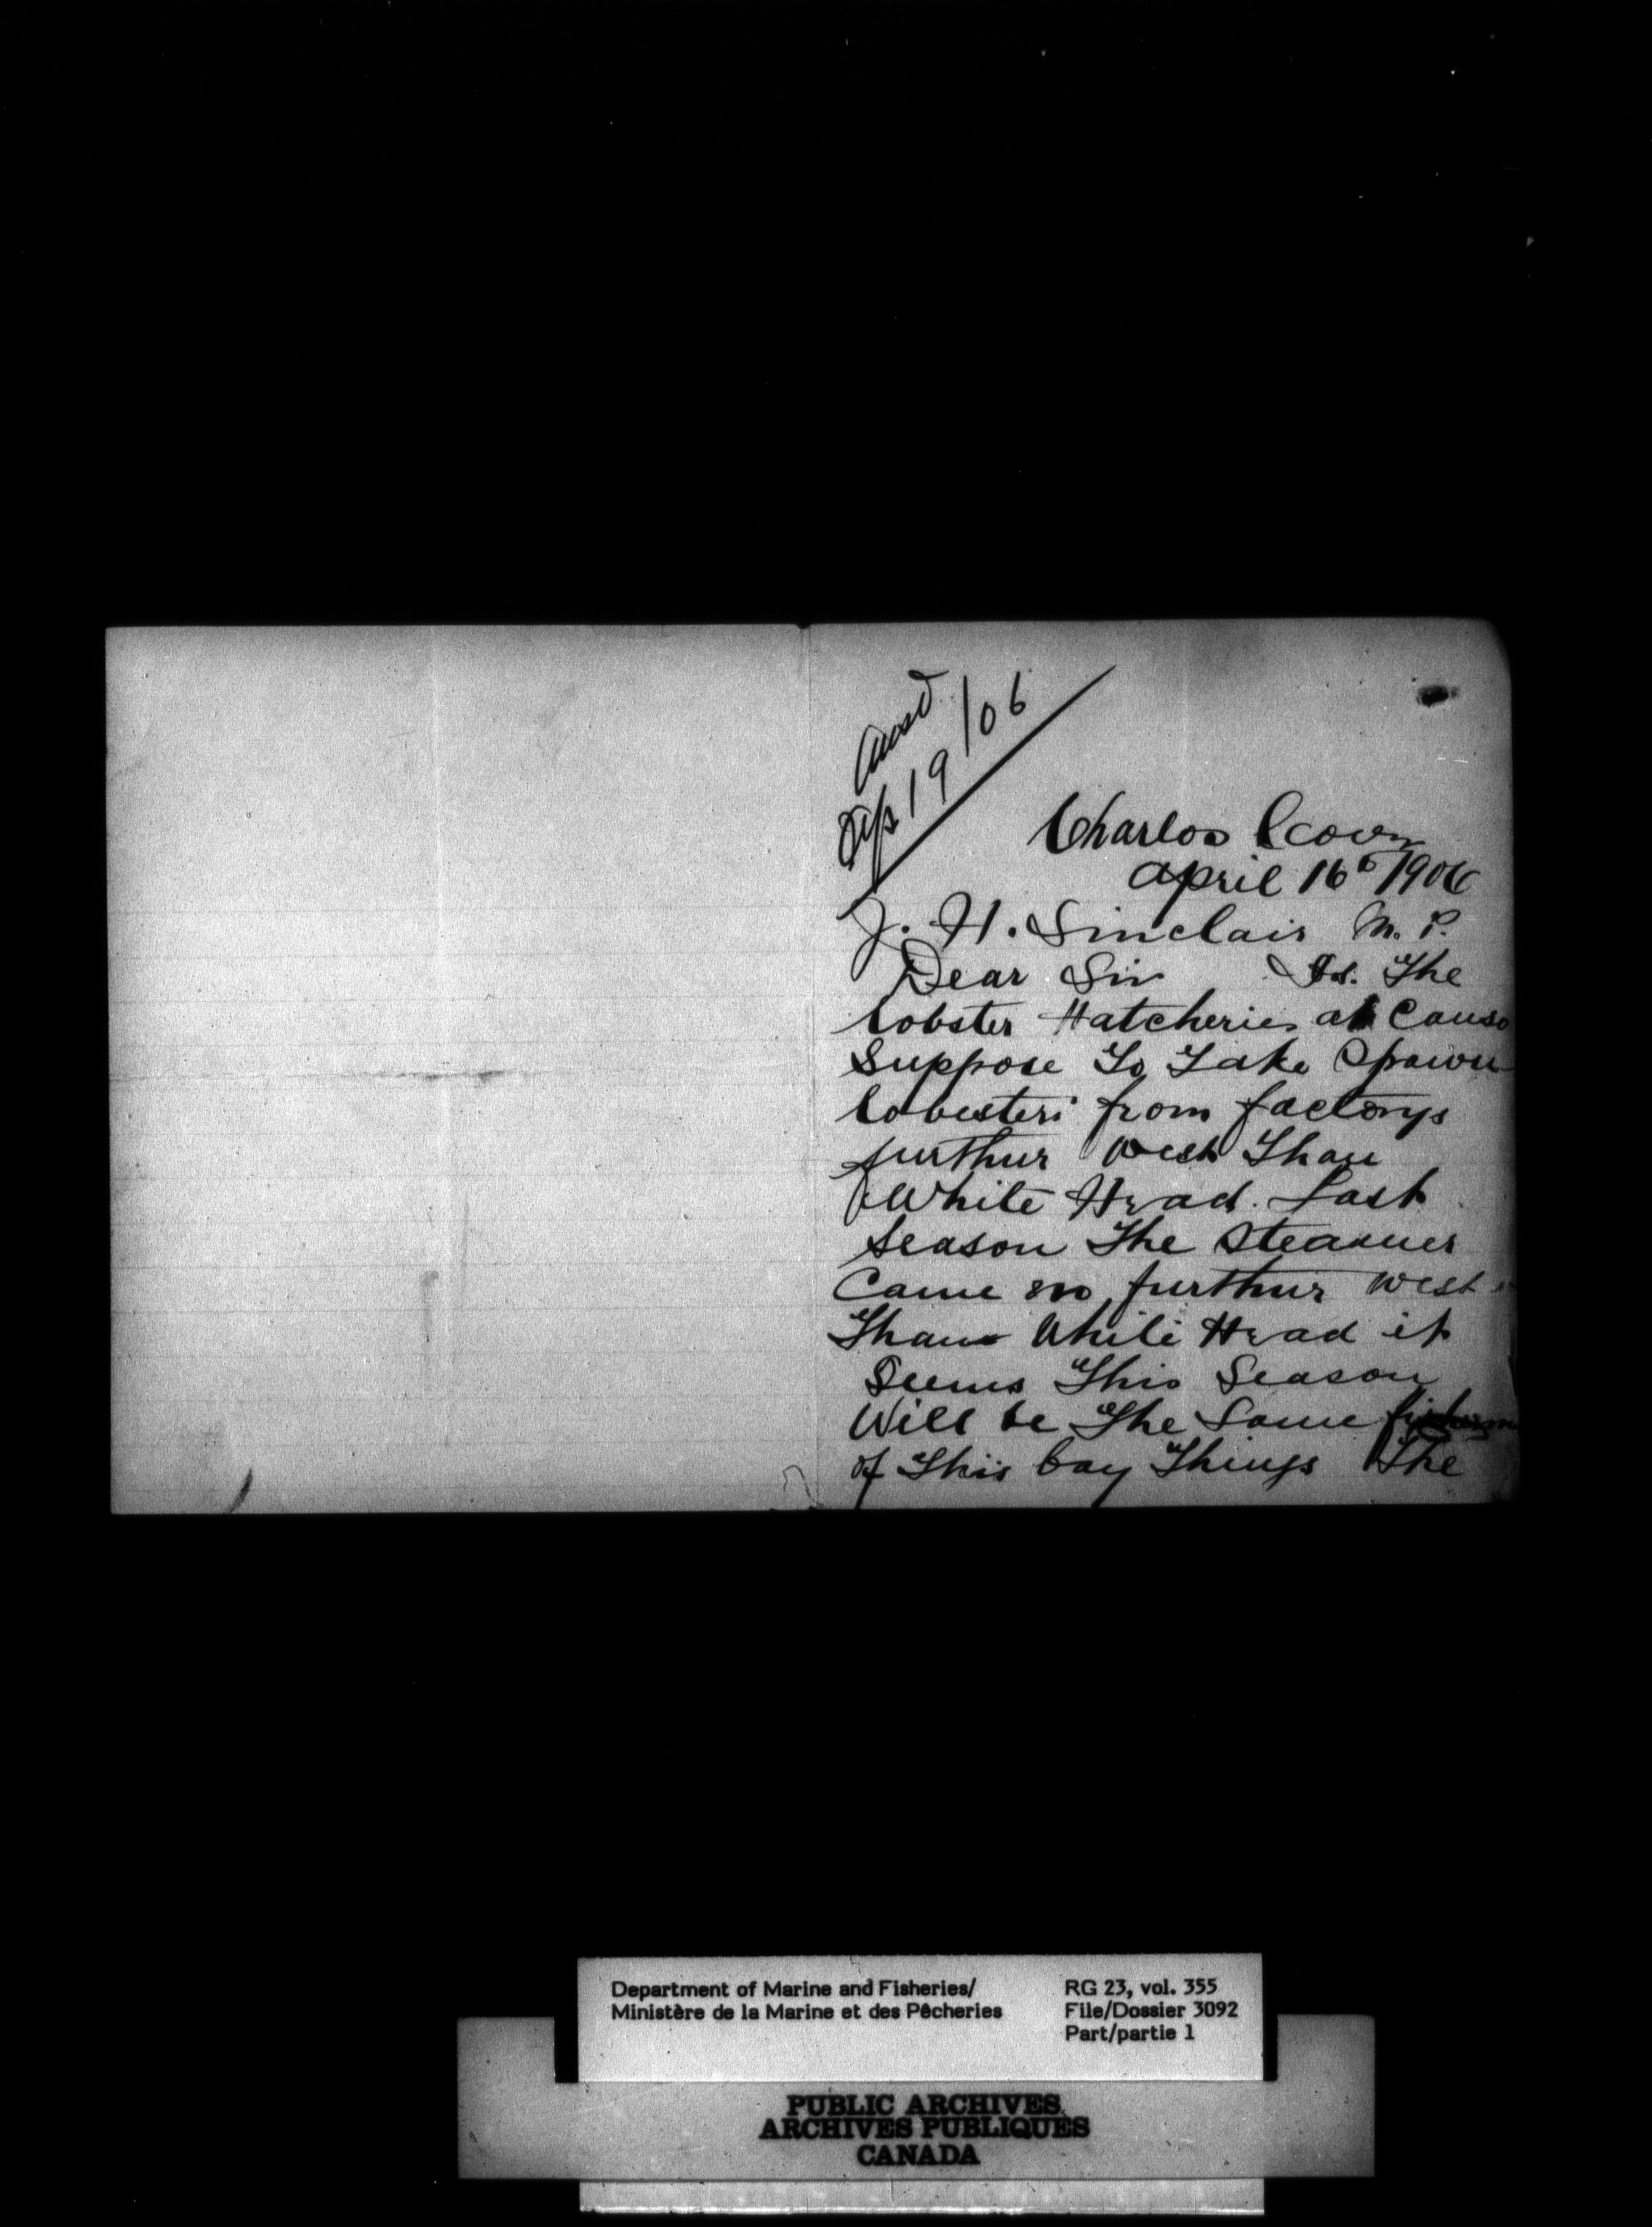 Ansd
Sep 19/06
Charlos Cove
April 16th 1906
J. H. Sinclair M. P.
Dear Sir Is. The
lobster Hatcheries at Canso
Suppose To Take Spawn
lobesters from factorys
furthur West Than
White Head. Last
Season The Steamer
Came no furthur West
Than White Head it
Seems This Season
Will be The Same
of This bay Things The
Department of Marine and Fisheries/
Ministère de la Marine et des Pêcheries
RG 23, vol. 355
File/Dossier 3092
Part/partie 1
PUBLIC ARCHIVES
ARCHIVES PUBLIQUES
CANADA